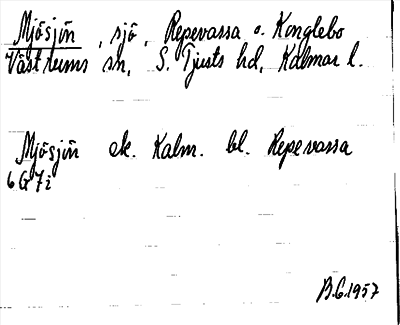 Mjösjön, sjö, Repevassa o. Konglebo
Västrums sn, S. Tjusts hd, Kalmar l.
Mjösjön ek. Kalm. bl. Repevassa
6 G 7 i
B.G. 1957